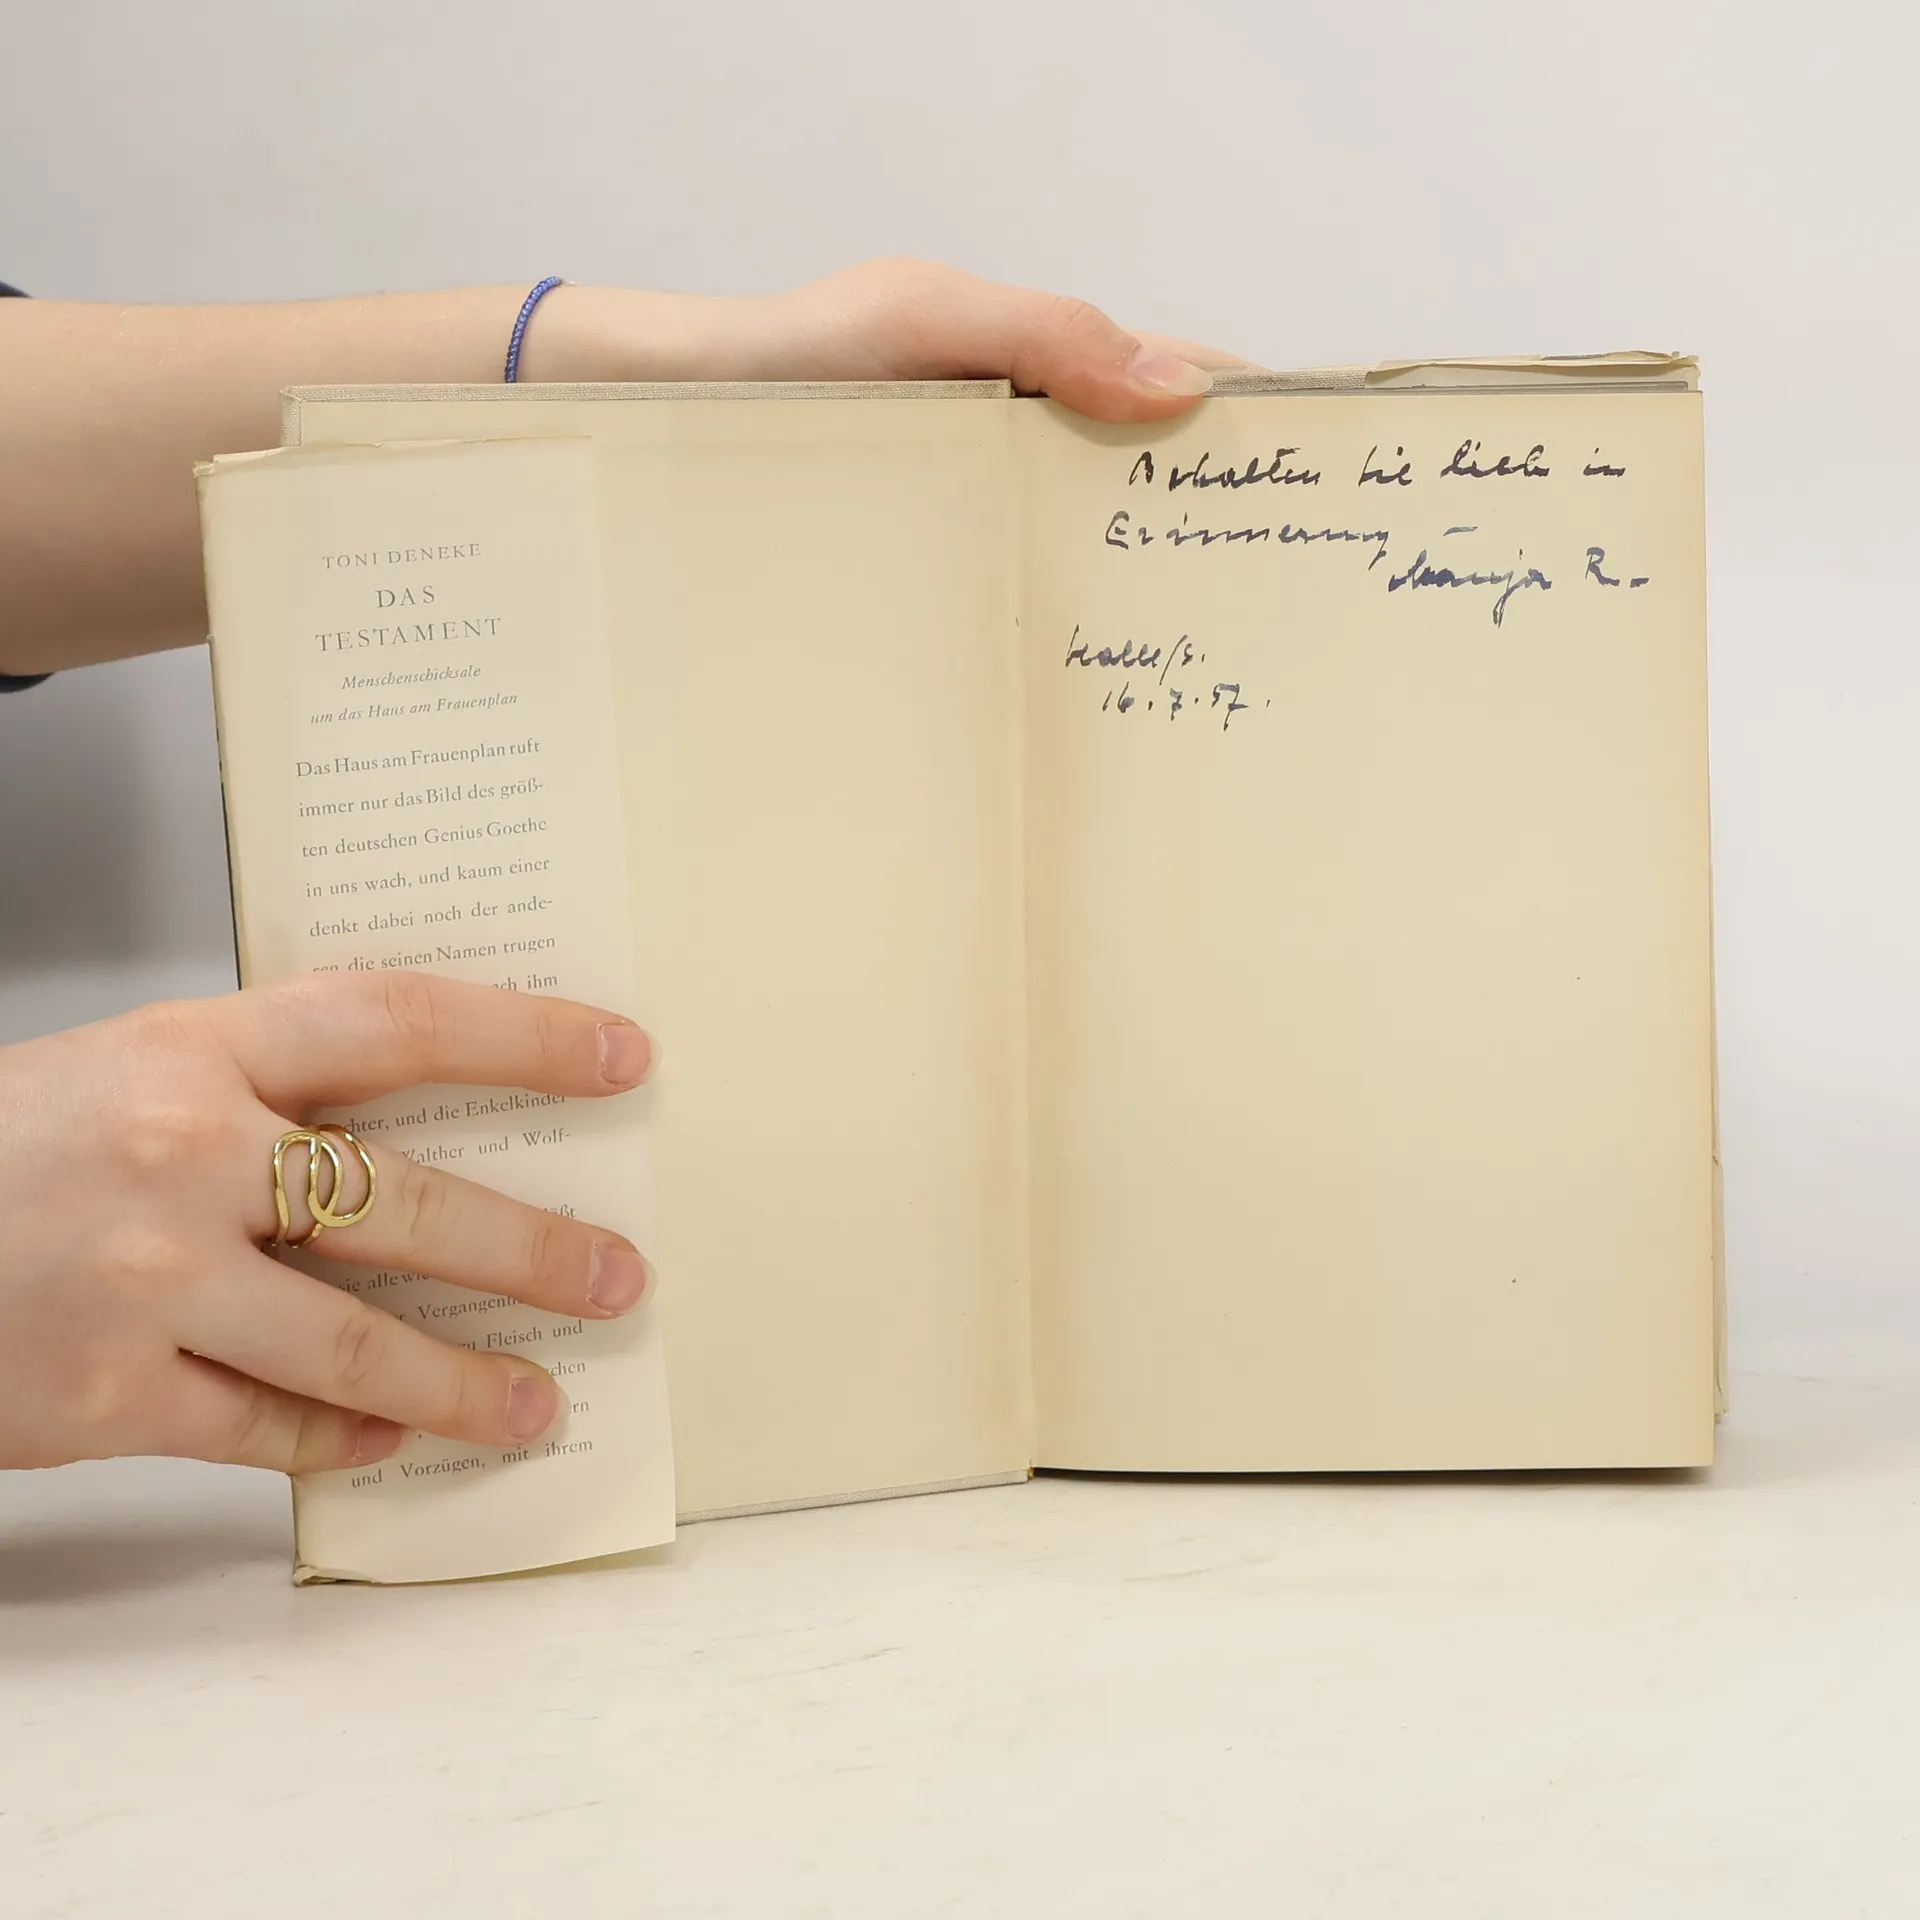 TONI DENEKE
DAS
TESTAMENT
Menschenschicksale
um das Haus am Frauenplan
Das Haus am Frauenplan ruft
immer nur das Bild des größ-
ten deutschen Genius Goethe
in uns wach, und kaum einer
denkt dabei noch der ande-
ren, die seinen Namen trugen
ihm
und die Enkelkinder
Walther und Wolf-
sie alle
Fleisch und
und Vorzügen, mit ihrem
Behalten Sie lieb in
Erinnerung –
R.
Halle/S.
16.7.57.